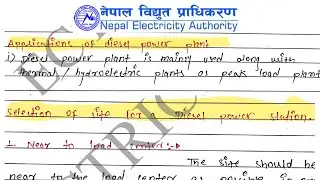 नेपाल विद्युत प्राधिकरण
Nepal Electricity Authority
Applications of diesel power plant
i) Diesel power plant is mainly used along with
thermal / hydroelectric plants as peak load plant
Selection of site for a Diesel power station.
1. Near to load center :-
The site should be
near to the load center as possible